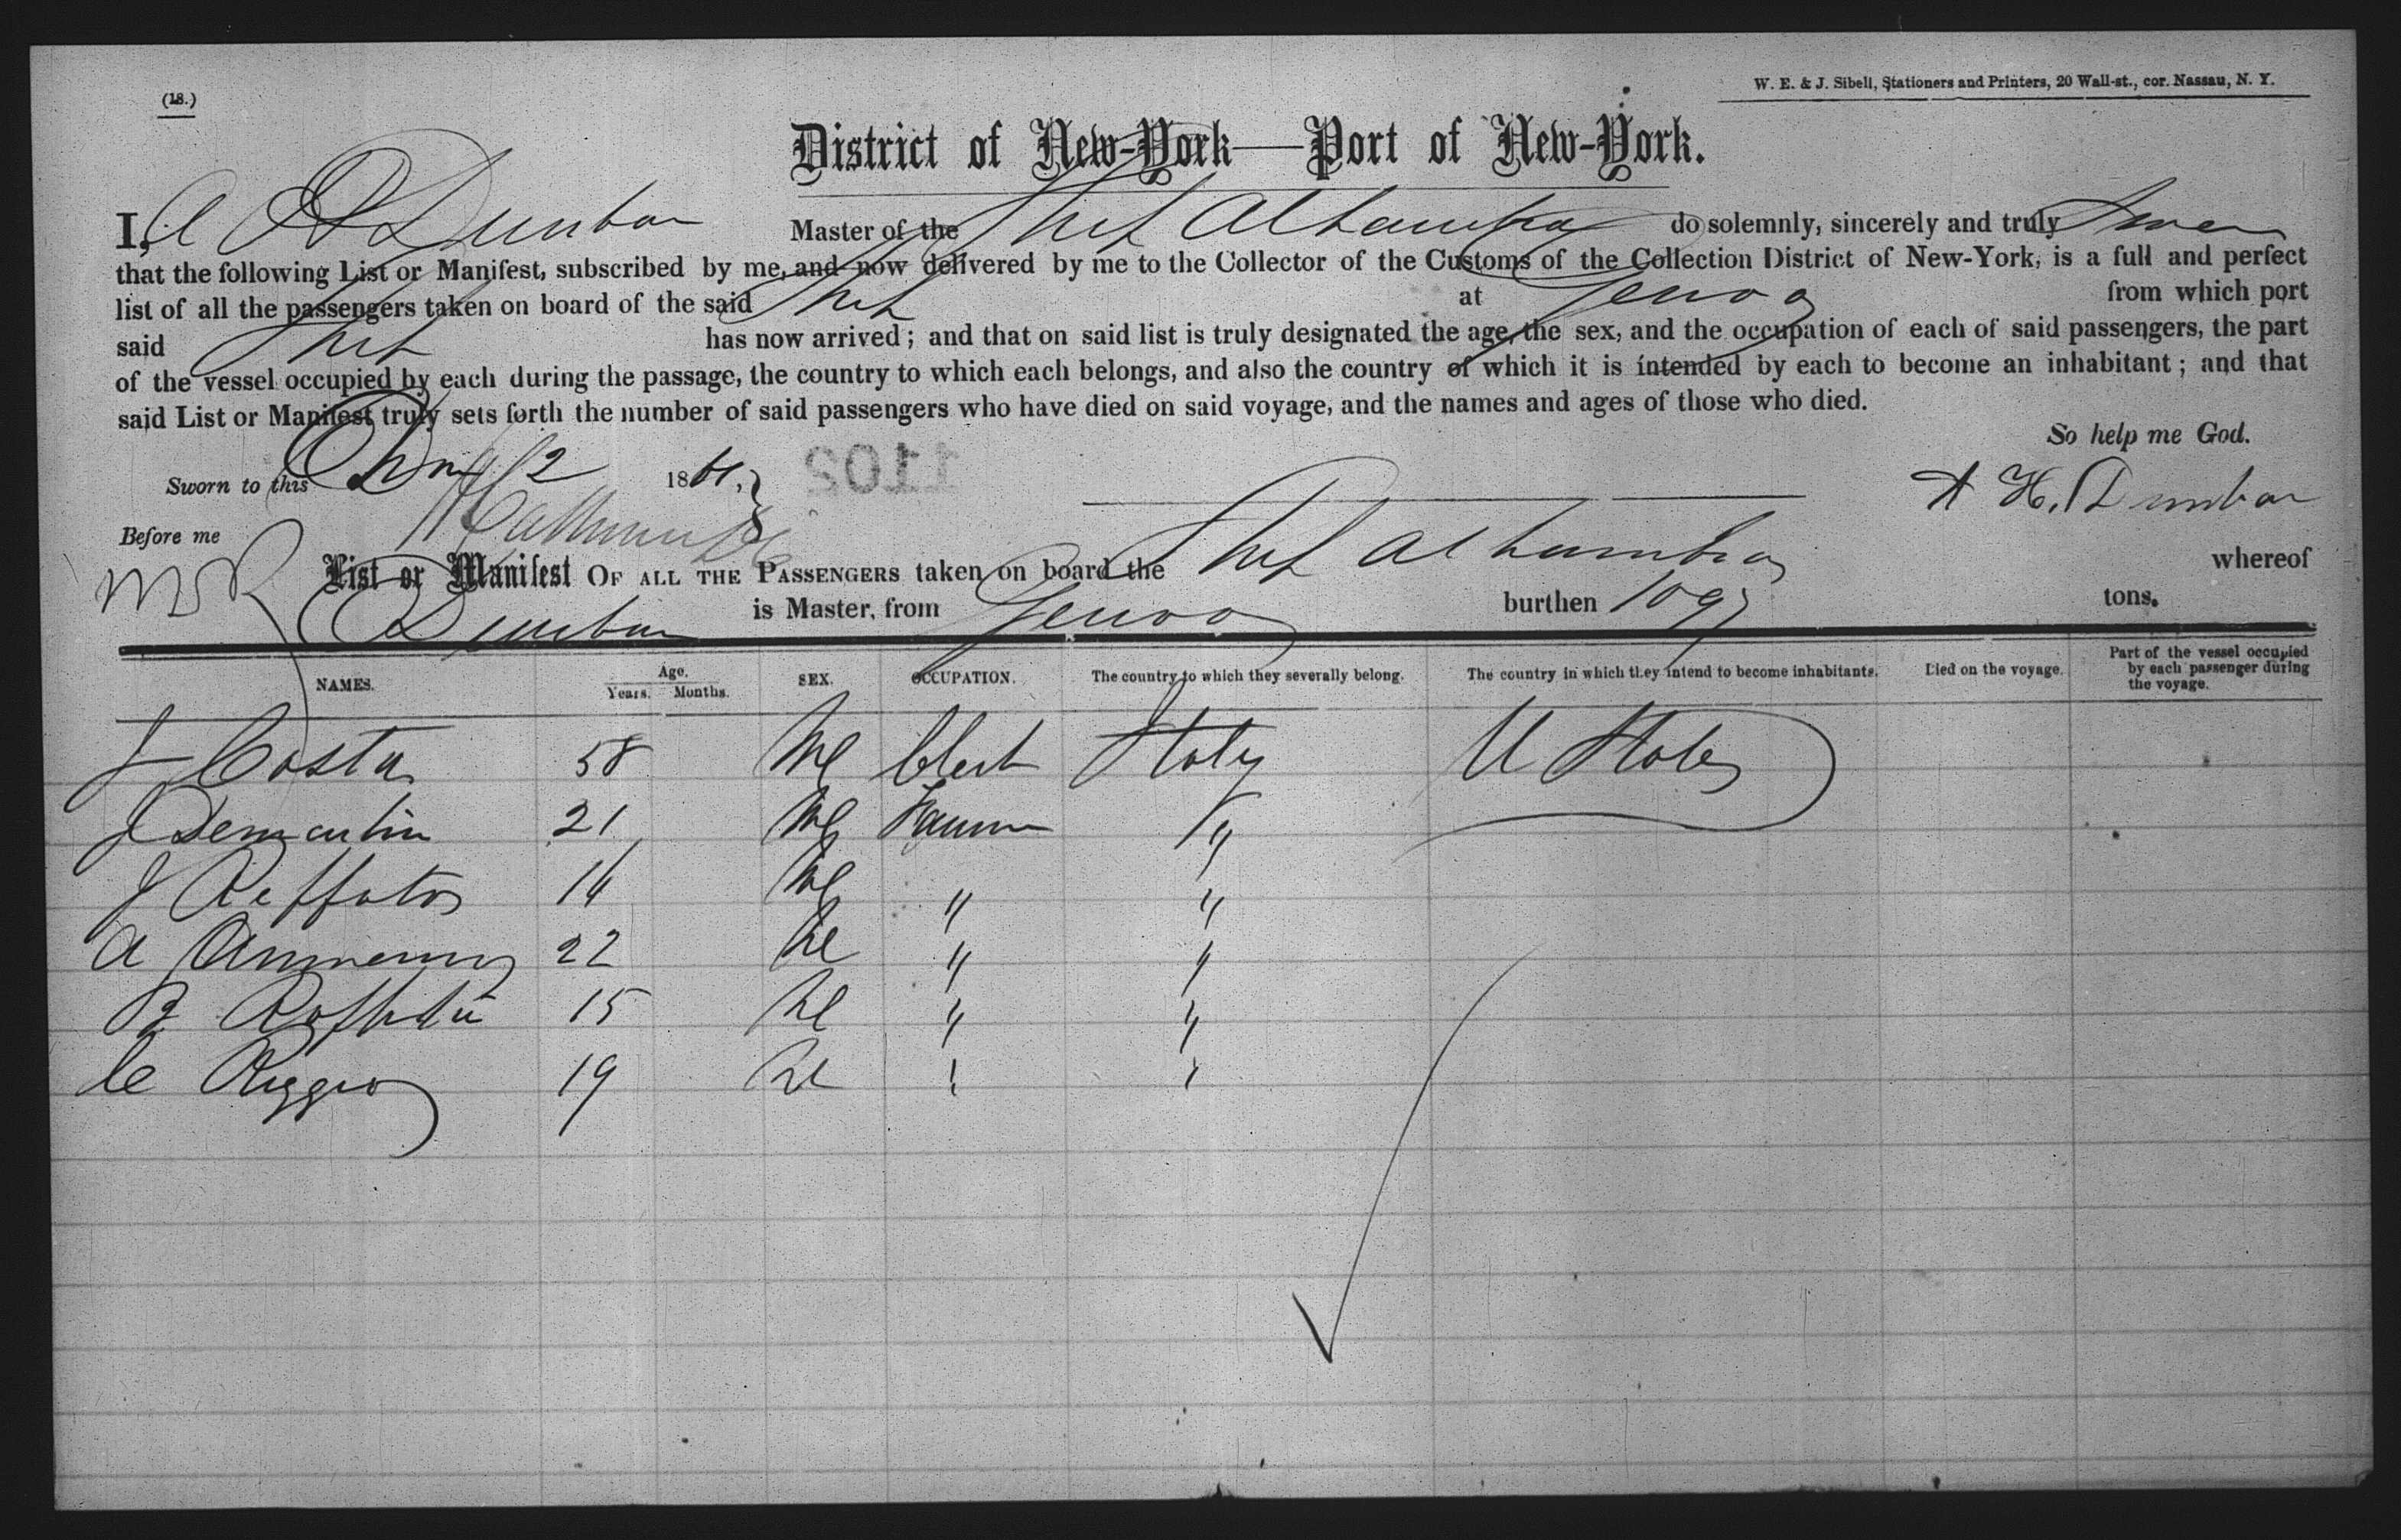 (18.)
W. E. & J. Sibell, Stationers and Printers, 20 Wall-st., cor. Nassau, N. Y.
District of New-York—Port of New-York.
I, A H Dunbar Master of the Ship Alhambra do solemnly, sincerely and truly Swear
that the following List or Manifest, subscribed by me, and now delivered by me to the Collector of the Customs of the Collection District of New-York, is a full and perfect
list of all the passengers taken on board of the said Ship at Genoa from which port
said Ship has now arrived; and that on said list is truly designated the age, the sex, and the occupation of each of said passengers, the part
of the vessel occupied by each during the passage, the country to which each belongs, and also the country of which it is intended by each to become an inhabitant; and that
said List or Manifest truly sets forth the number of said passengers who have died on said voyage, and the names and ages of those who died.
So help me God.
Sworn to this 12 1861, 1102
A H. Dunbar
Before me
List or Manifest OF ALL THE PASSENGERS taken on board the Ship Alhambra whereof
Dunbar is Master, from Genoa burthen 1097 tons.
NAMES. Age. Years. Months. SEX. OCCUPATION. The country to which they severally belong. The country in which they intend to become inhabitants. Died on the voyage. Part of the vessel occupied by each passenger during the voyage.
J Costa 58 Ml Clerk Italy U States
J Demartin 21 Ml Farmer "
J Reffoto 14 Ml " "
A 22 Ml " "
B 15 Ml " "
C Riggio 19 Ml " "